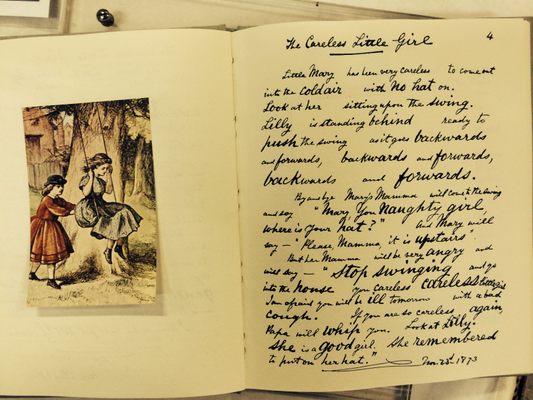 4
The Careless Little Girl
Little Mary has been very careless to come out
into the cold air with no hat on.
Look at her sitting upon the swing.
Lilly is standing behind ready to
push the swing as it goes backwards
and forwards, backwards and forwards,
backwards and forwards.
By and bye Mary's Mamma will come to the swing
and say "Mary You naughty girl,
where is your hat?" And Mary will
say – "Please, Mamma, it is upstairs".
But her Mamma will be very angry and
will say – "Stop swinging and go
into the house you careless careless little girl
I'm afraid you will be ill tomorrow with a bad
cough. If you are so careless again
Papa will whip you. Look at Lilly.
She is a good girl. She remembered
to put on her hat."
Nov. 25th 1873